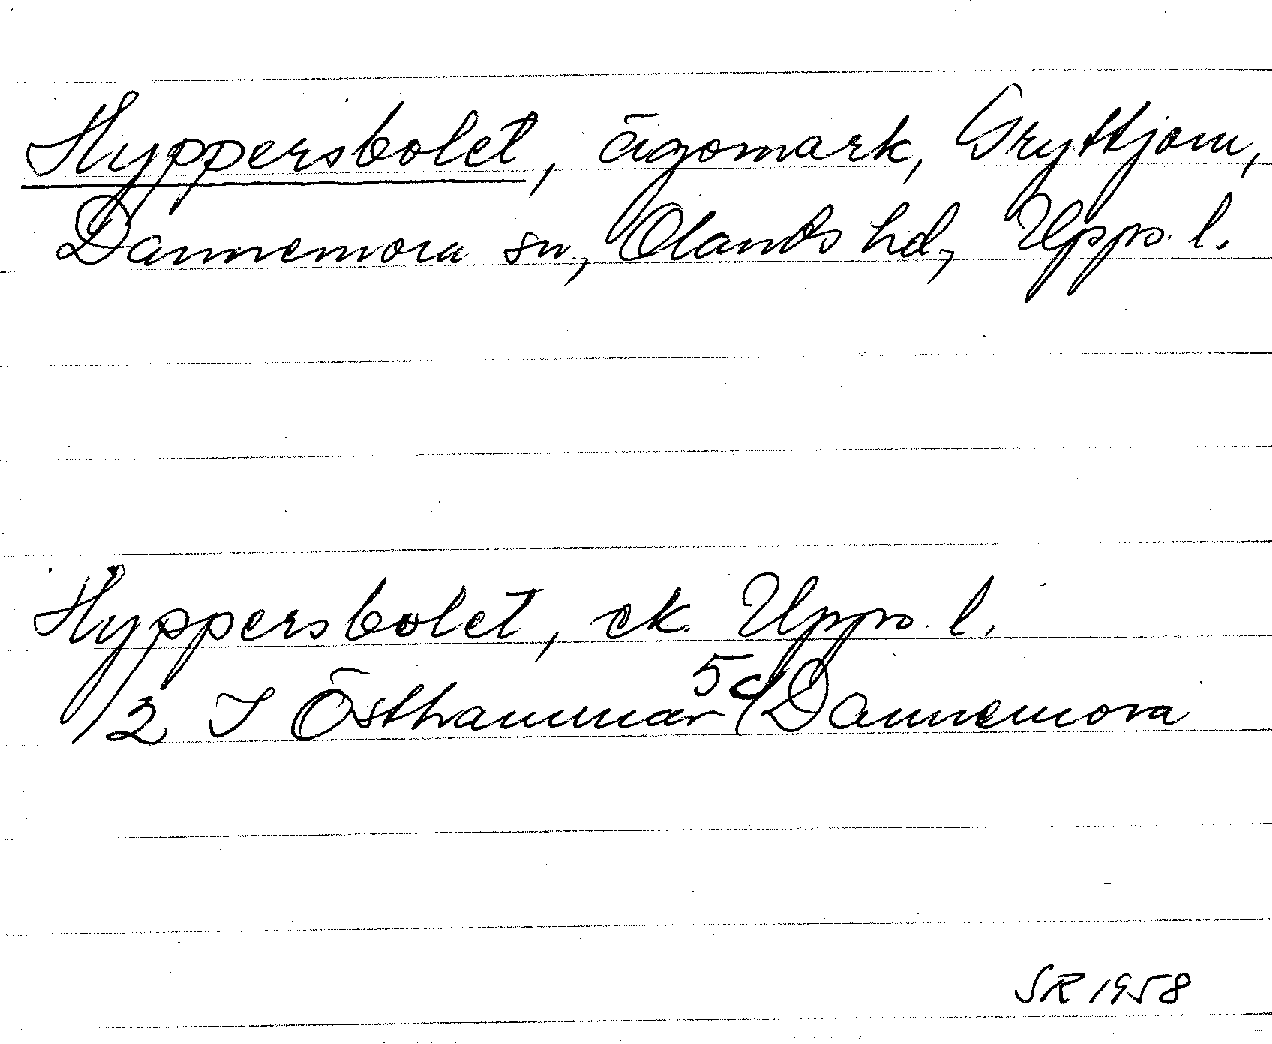 Hyppersbolet, ägomark, Gryttjom,
Dannemora sn, Olands hd, Upps. l.
Hyppersbolet, ek. Upps. l.
12 I Östhammar 5c Dannemora
SR 1958